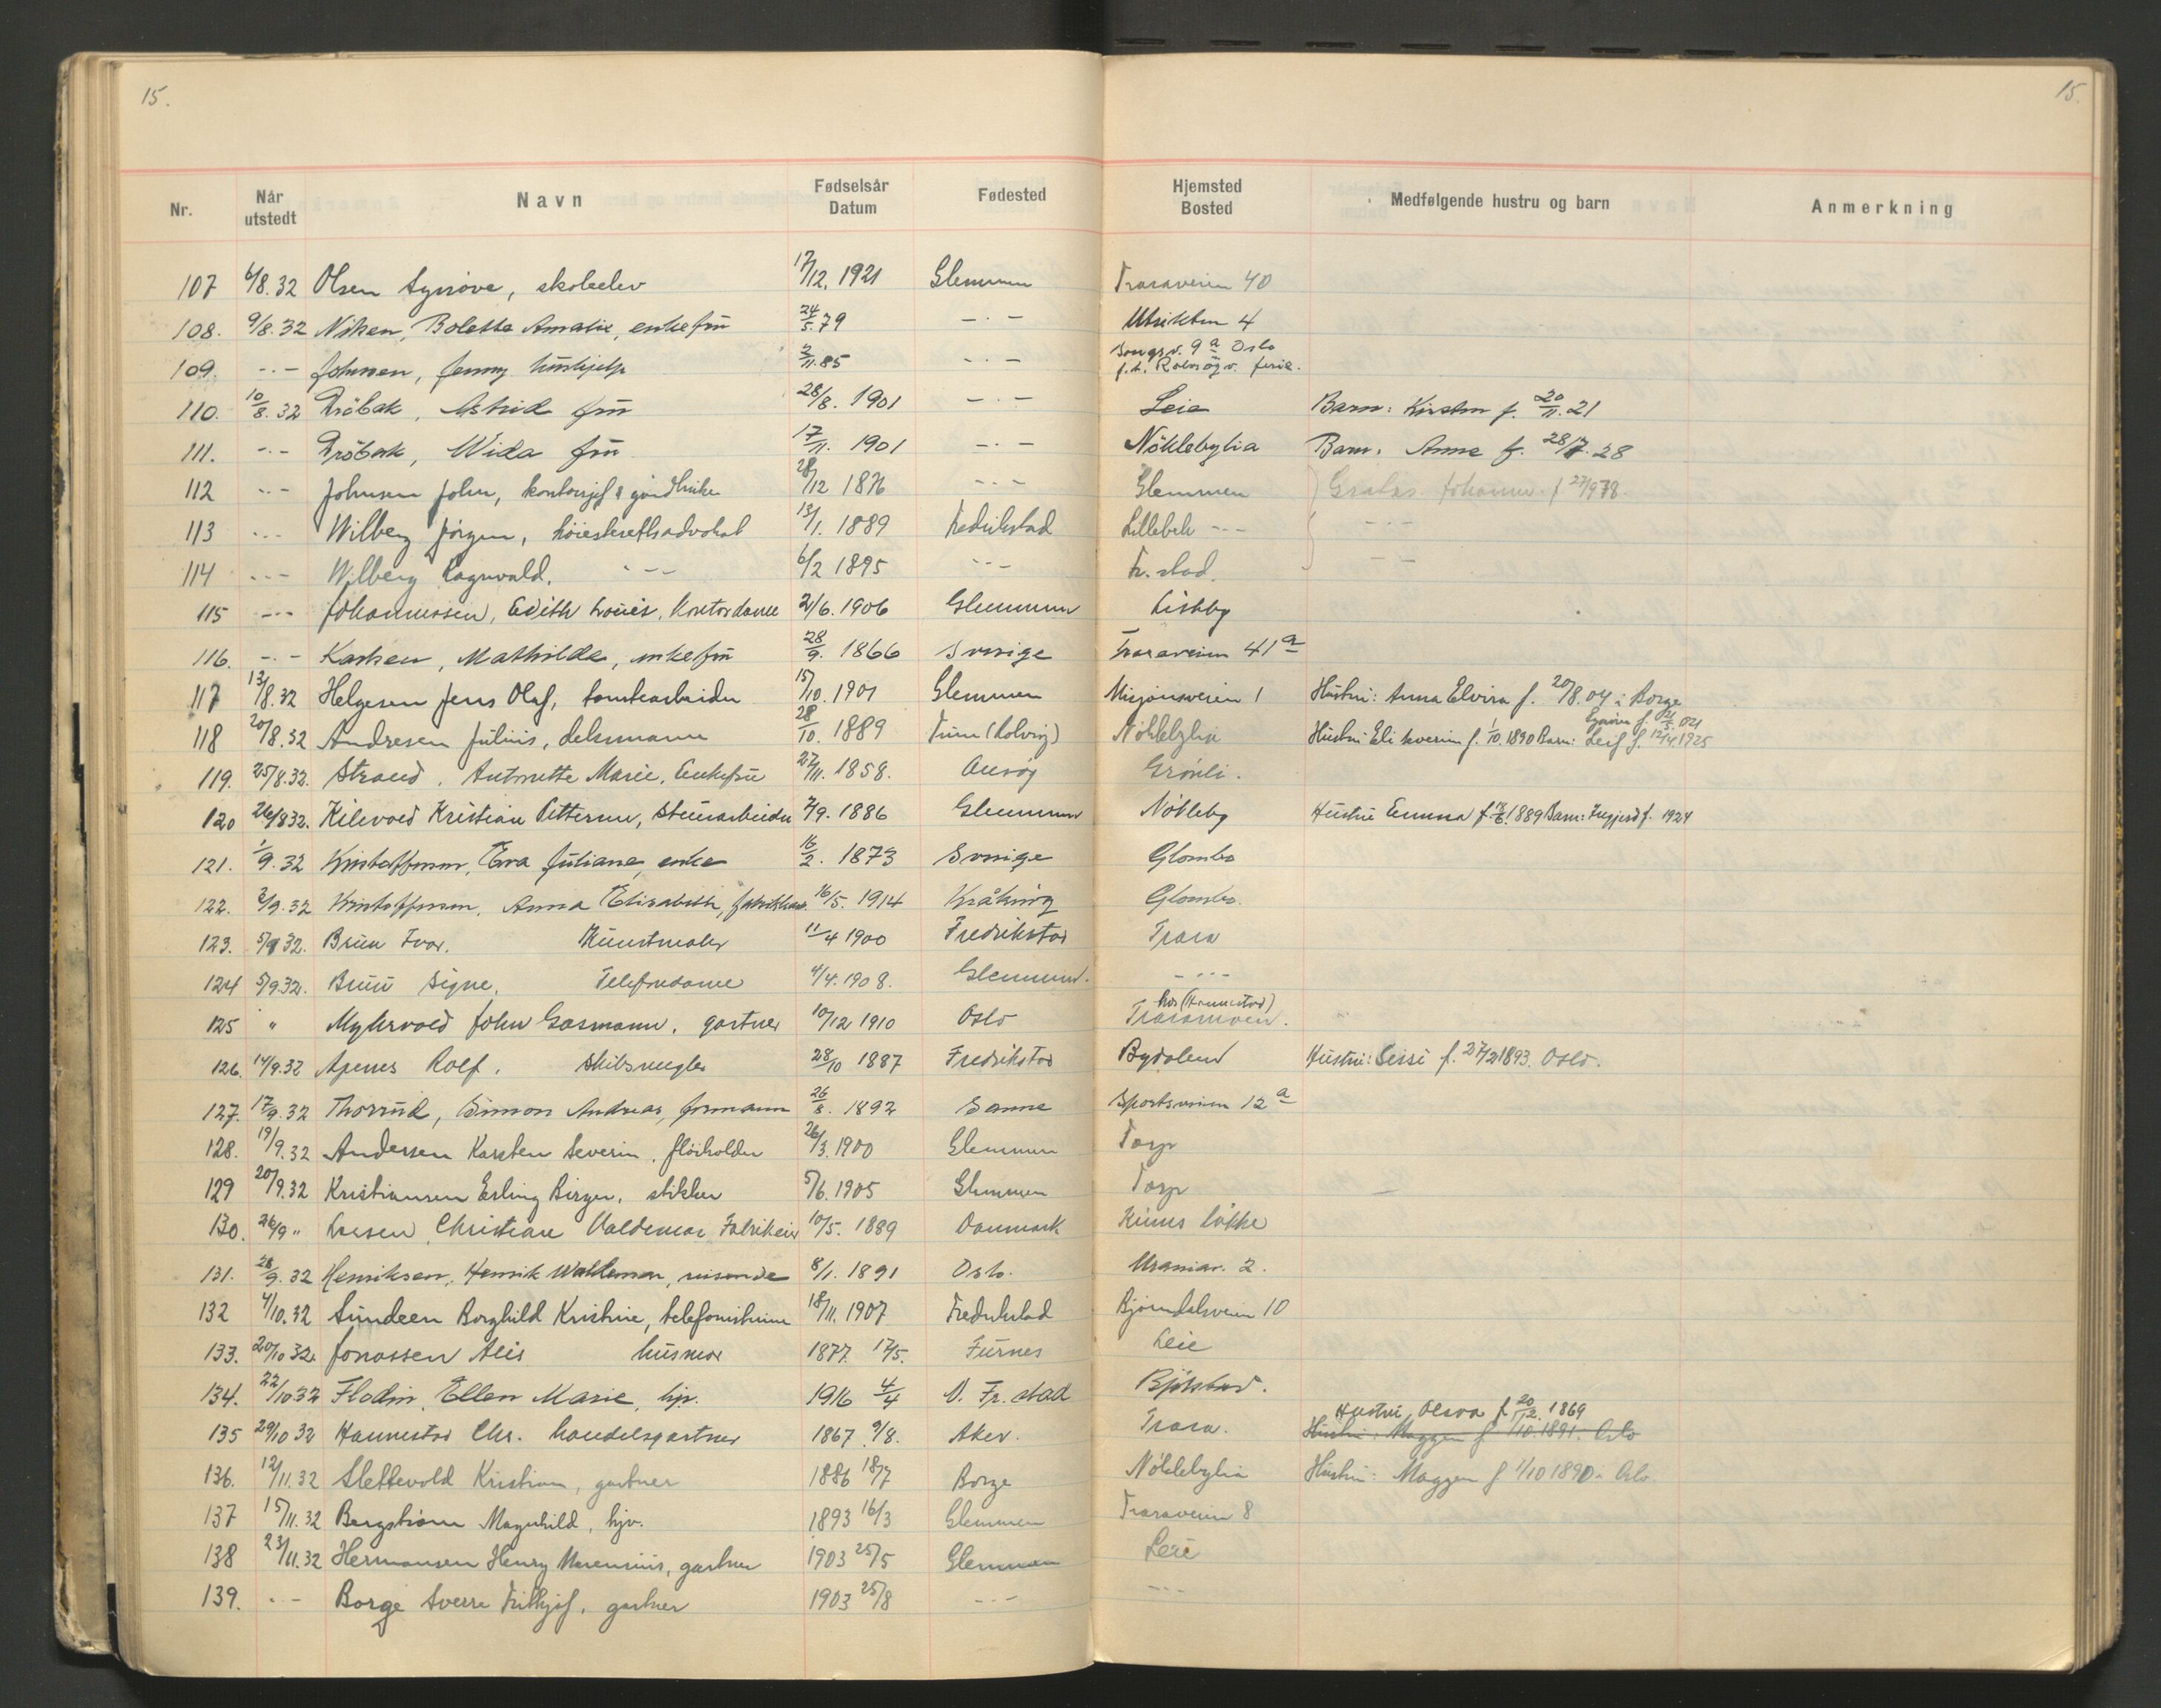 15.
15.
Nr. Når utstedt Navn Fødselsår Datum Fødested Hjemsted Bosted Medfølgende hustru og barn Anmerkning
107 6/8.32 Olsen Synnøve, skoleelev 17/12.1921 Glemmen Traraveien 40
108. 9/8.32 Nilsen, Bolette Amalie, enkefru 24/5.79 -"- Utsikten 4
109. -"- Johnsen, Jenny hushjelp 2/11.85 -"- Songsv. 9a Oslo
f.t. Rolvsøyv. ferie.
110. 10/8.32 Drøbak, Astrid fru 28/8.1901 -"- Leie Barn: Kirsten f. 20/11.21
111. -"- Drøbak, Wida fru 17/11.1901 -"- Nøklebylia Barn: Anne f. 28/7.28
112 -"- Johnsen John, kontorsjef & 28/12 1876 -"- Glemmen Johanne f 27/9 78.
113 -"- Wilberg Jørgen, høiesteretsadvokat 13/1.1889 Fredrikstad Lillebek -"- -"-
114 -"- Wilberg Ragnvald, -"- 6/2 1895 -"- Fr.stad. -"-
115 -"- Johannessen, Edith Louise, Kontordame 2/6.1906 Glemmen Lisleby
116. -"- Karlsen, Mathilde, enkefru 28/9.1866 Sverige Traraveien 41a
117 13/8.32 Helgesen Jens Olaf, tomtearbeider 15/10.1901 Glemmen Misjonsveien 1 Hustru: Anna Elvira f. 20/8.04 i Borge
118 20/8.32 Andresen Julius, delsmann 28/10.1889 Tune (Rolvsøy) Nøklebylia Hustru Eli Severine f. 1/10.1890 Barn: Leif f. 12/4 1925
119. 25/8.32. Strand, Antonette Marie, Enkefru 27/11.1858. Onsøy Grønli.
120 26/8 32. Kilevold Kristian Petterson, Stenarbeider 7/9.1886 Glemmen Nøkleby Hustru Emma f. 1889 Barn: Ingjerd f. 1924
121. 1/9.32 Kristoffersen, Eva Juliane, enke 16/2.1873 Sverige Glombo
122. 2/9.32 Kristoffersen, Anna Elisabeth, fabrikkarb. 16/5.1914 Kråkerøy Glombo.
123. 5/9 32. Bruu Ivar. Kunstmaler 11/4 1900 Fredrikstad Trara
124 5/9 32. Bruu Signe. Telefondame 4/4.1908. Glemmen. -"-
125 " Myhrvold John Gasmann, gartner 10/12 1910 Oslo Hos (Hannestad)
Traramoen.
126. 14/9.32 Apenes Rolf. Skibsmegler 28/10 1887 Fredrikstad Bydalen Hustru: Sissi f. 27/2 1893. Oslo.
127. 17/9.32 Thorrud, Simon Andreas, formann 26/8.1892 Sanne Sportsveien 12a
128. 19/9.32 Andersen Karsten Severin, 26/3.1900 Glemmen Torp
129 20/9.32 Kristiansen Erling Birger, stikker 5/6.1905 Glemmen Torp
130. 26/9 " Larsen, Christian Valdemar Fabrikeier 10/5.1889 Danmark løkke
131. 28/9.32 Henriksen, Henrik Waldemar, reisende 8/1.1891 Oslo. Uraniav. 2.
132 4/10.32 Sundeen Borghild Kristine, telefonistinne 18/11.1907 Fredrikstad Bjørndalsveien 10
133. 20/10 32. Jonassen Alis husmor 1877. 17/5. Furnes Leie
134. 22/10 32 Flodin, Ellen Marie, hjv. 1916 4/4 V. Fr.stad Bjølstad.
Hustru Olava f 20/12.1869
135 29/10 32 Hannestad Chr. handelsgartner 1867 9/8. Aker. Trara. Hustru: Maggen f 1/10.1891. Oslo
136. 12/11.32 Slettevold Kristian, gartner 1886 18/7 Borge Nøklebylia Hustru: Maggen f 1/10 1890 - Oslo.
137 15/11.32 Bergstrøm Magnhild, hjv. 1893 16/3 Glemmen Traraveien 8
138 23/11.32 Hermansen Henry Marensius, gartner 1903 25/5 Glemmen Leie
139. -"- Borge Sverre Fritjof, gartner 1903 25/8 -"- -"-